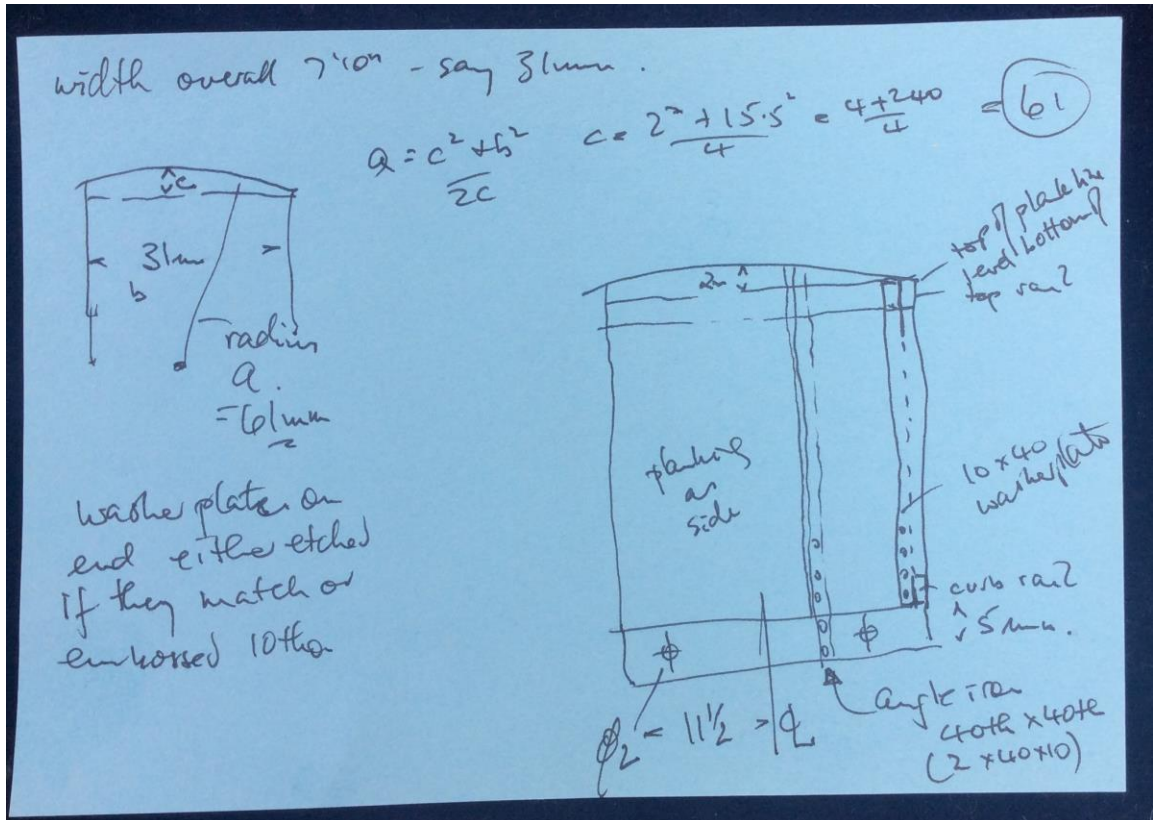 width overall 7'10" - say 31mm.
a = c² + b² / 2c
c = 2² + 15.5² / 4 = 4 + 240 / 4 = 61
c
31mm
b
radius
a.
= 61mm
washer plates on
end either etched
if they match or
embossed 10tho
top of plate
level bottom of
top rail
2m
planking
as
side
10 x 40
washer plate
curb rail
5mm.
angle iron
40th x 40th
(2 x 40 x 10)
11½